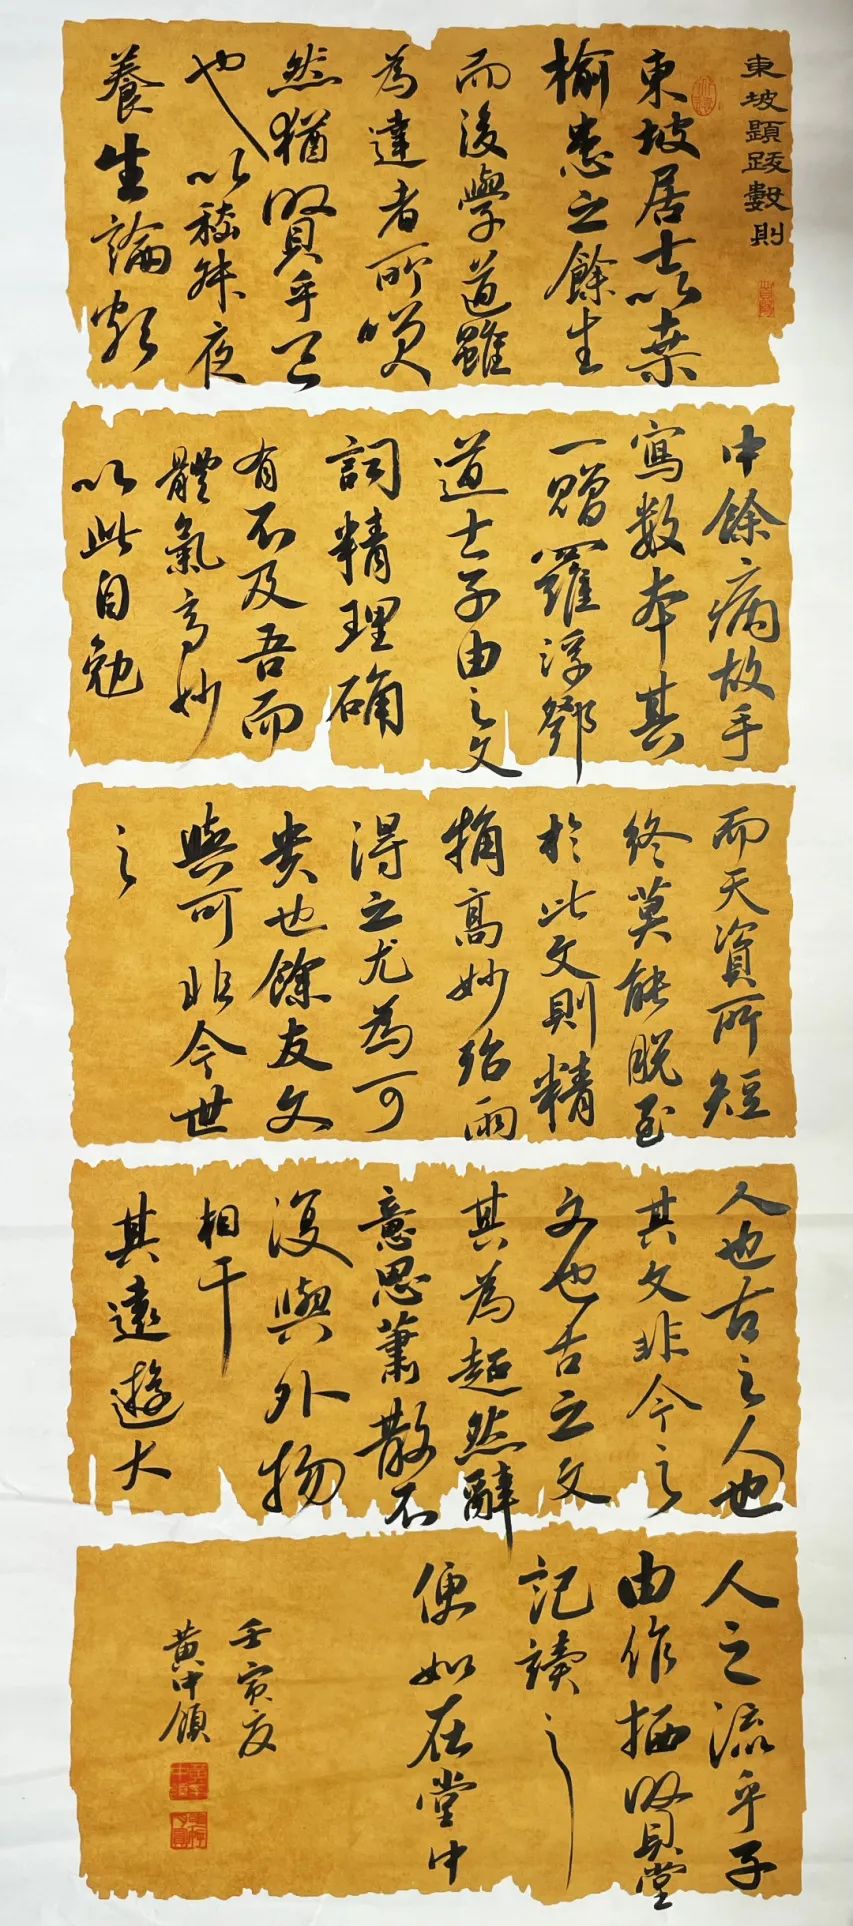 東坡題跋數則
東坡居士以桑
榆悉之餘生
而後學道雖
為達者所笑
然猶賢乎已
也以嵇叔夜
養生論頗
中餘病故手
寫數本其
一贈羅浮鄧
道士子由之文
詞精理確
有不及吾而
體氣高妙
以此自勉
而天資所短
終莫能脫至
於此文則精
確高妙殆兩
得之尤為可
貴也餘友文
與可非今世
之
人也古之人也
其文非今之
文也古之文
其為超然辭
意思蕭散不
復與外物
相干
其遠遊大
人之流乎子
由作栖賢堂
記讀之
便如在堂中
壬寅夏
黃中領